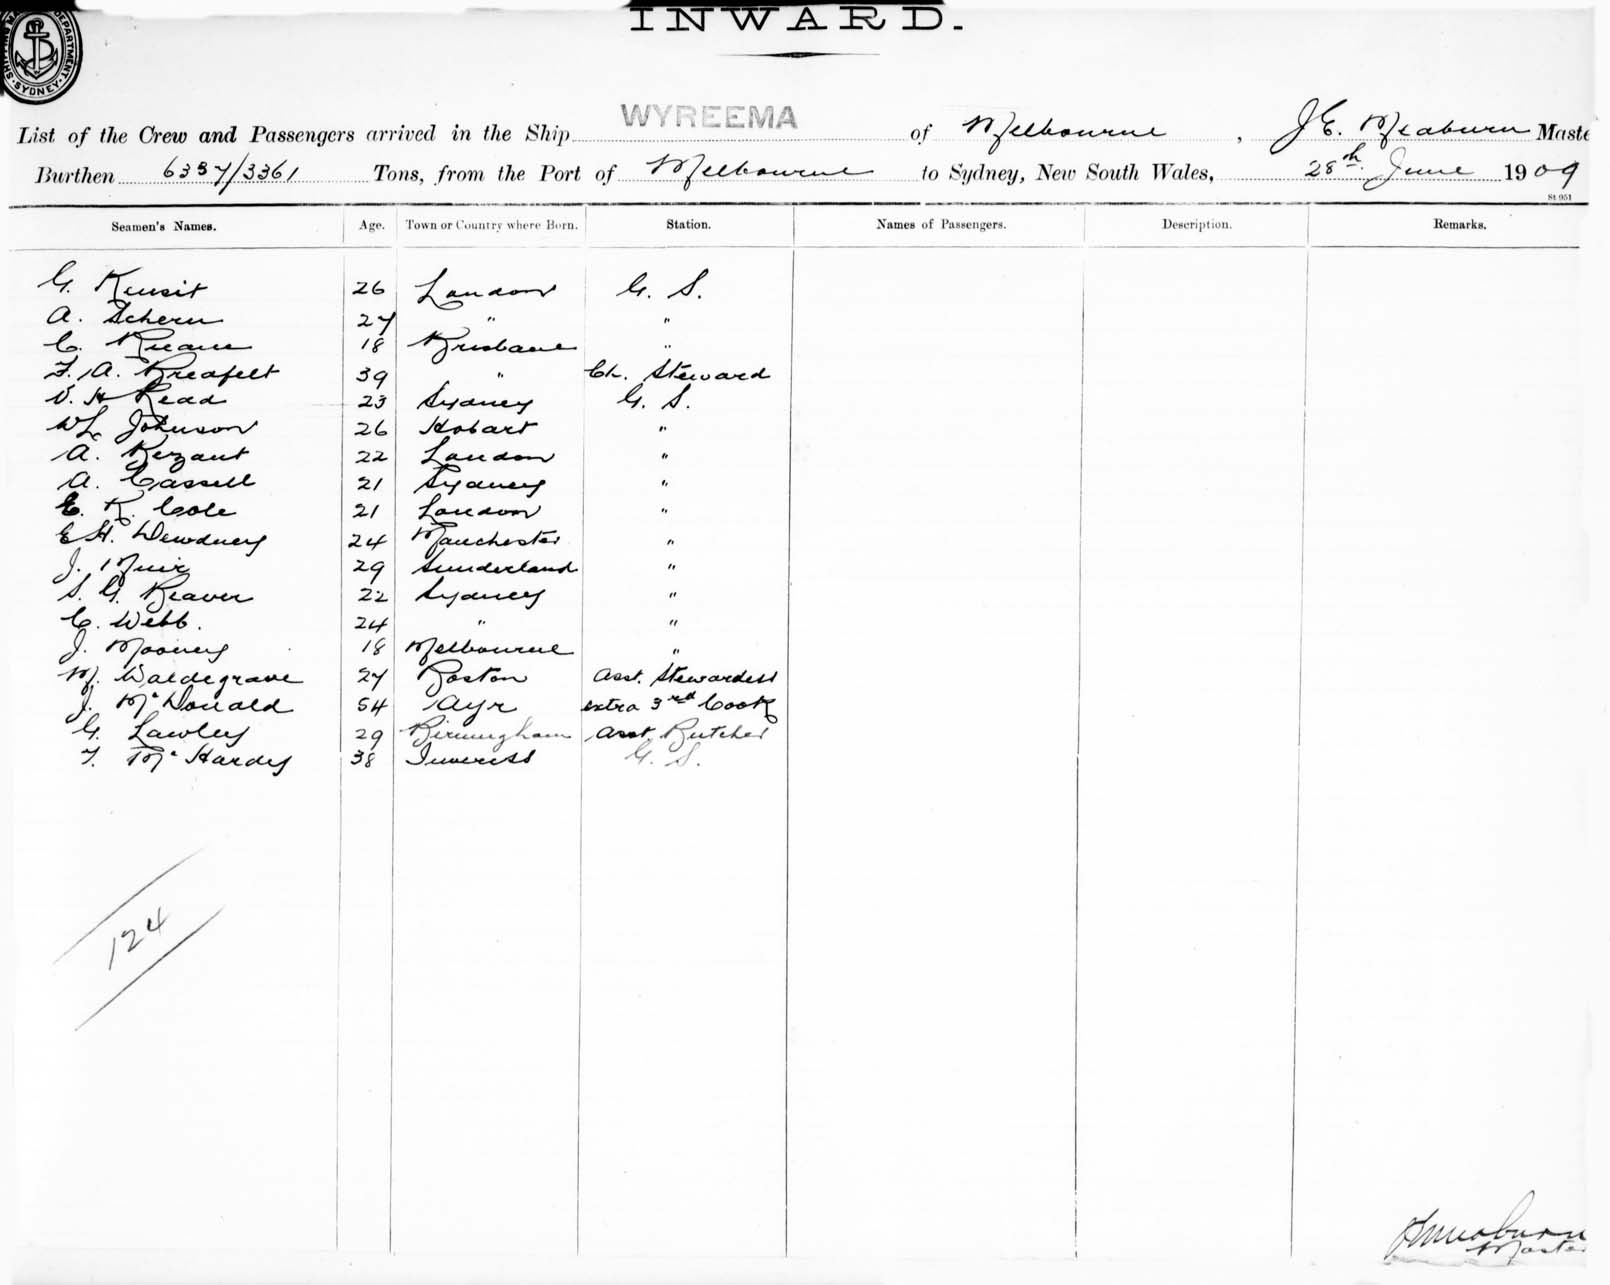 INWARD.
DEPARTMENT SYDNEY
List of the Crew and Passengers arrived in the Ship WYREEMA of Melbourne, J. E. Meaburn Maste
Burthen 6337/3361 Tons, from the Port of Melbourne to Sydney, New South Wales, 28th June 1909
St 951
Seamen's Names. Age. Town or Country where Born. Station. Names of Passengers. Description. Remarks.
G. Kensit 26 London G. S.
A. Schern 27 " "
C. Ruane 18 Brisbane "
F. A. Breafelt 39 " Ch. Steward
V. H Read 23 Sydney G. S.
W L Johnson 26 Hobart "
A. Bezant 22 London "
A. Cassell 21 Sydney "
E. R. Cole 21 London "
E H. Dewdney 24 Manchester "
J. Muir 29 Sunderland "
S. G. Beaver 22 Sydney "
C. Webb. 24 " "
J. Mooney 18 Melbourne "
M. Waldegrave 27 Boston Asst. Stewardess
J. McDonald 54 Ayr extra 3rd Cook
G. Lawley 29 Birmingham Asst Butcher
F. McHardy 38 Inverness G. S.
124
Meaburn
Master